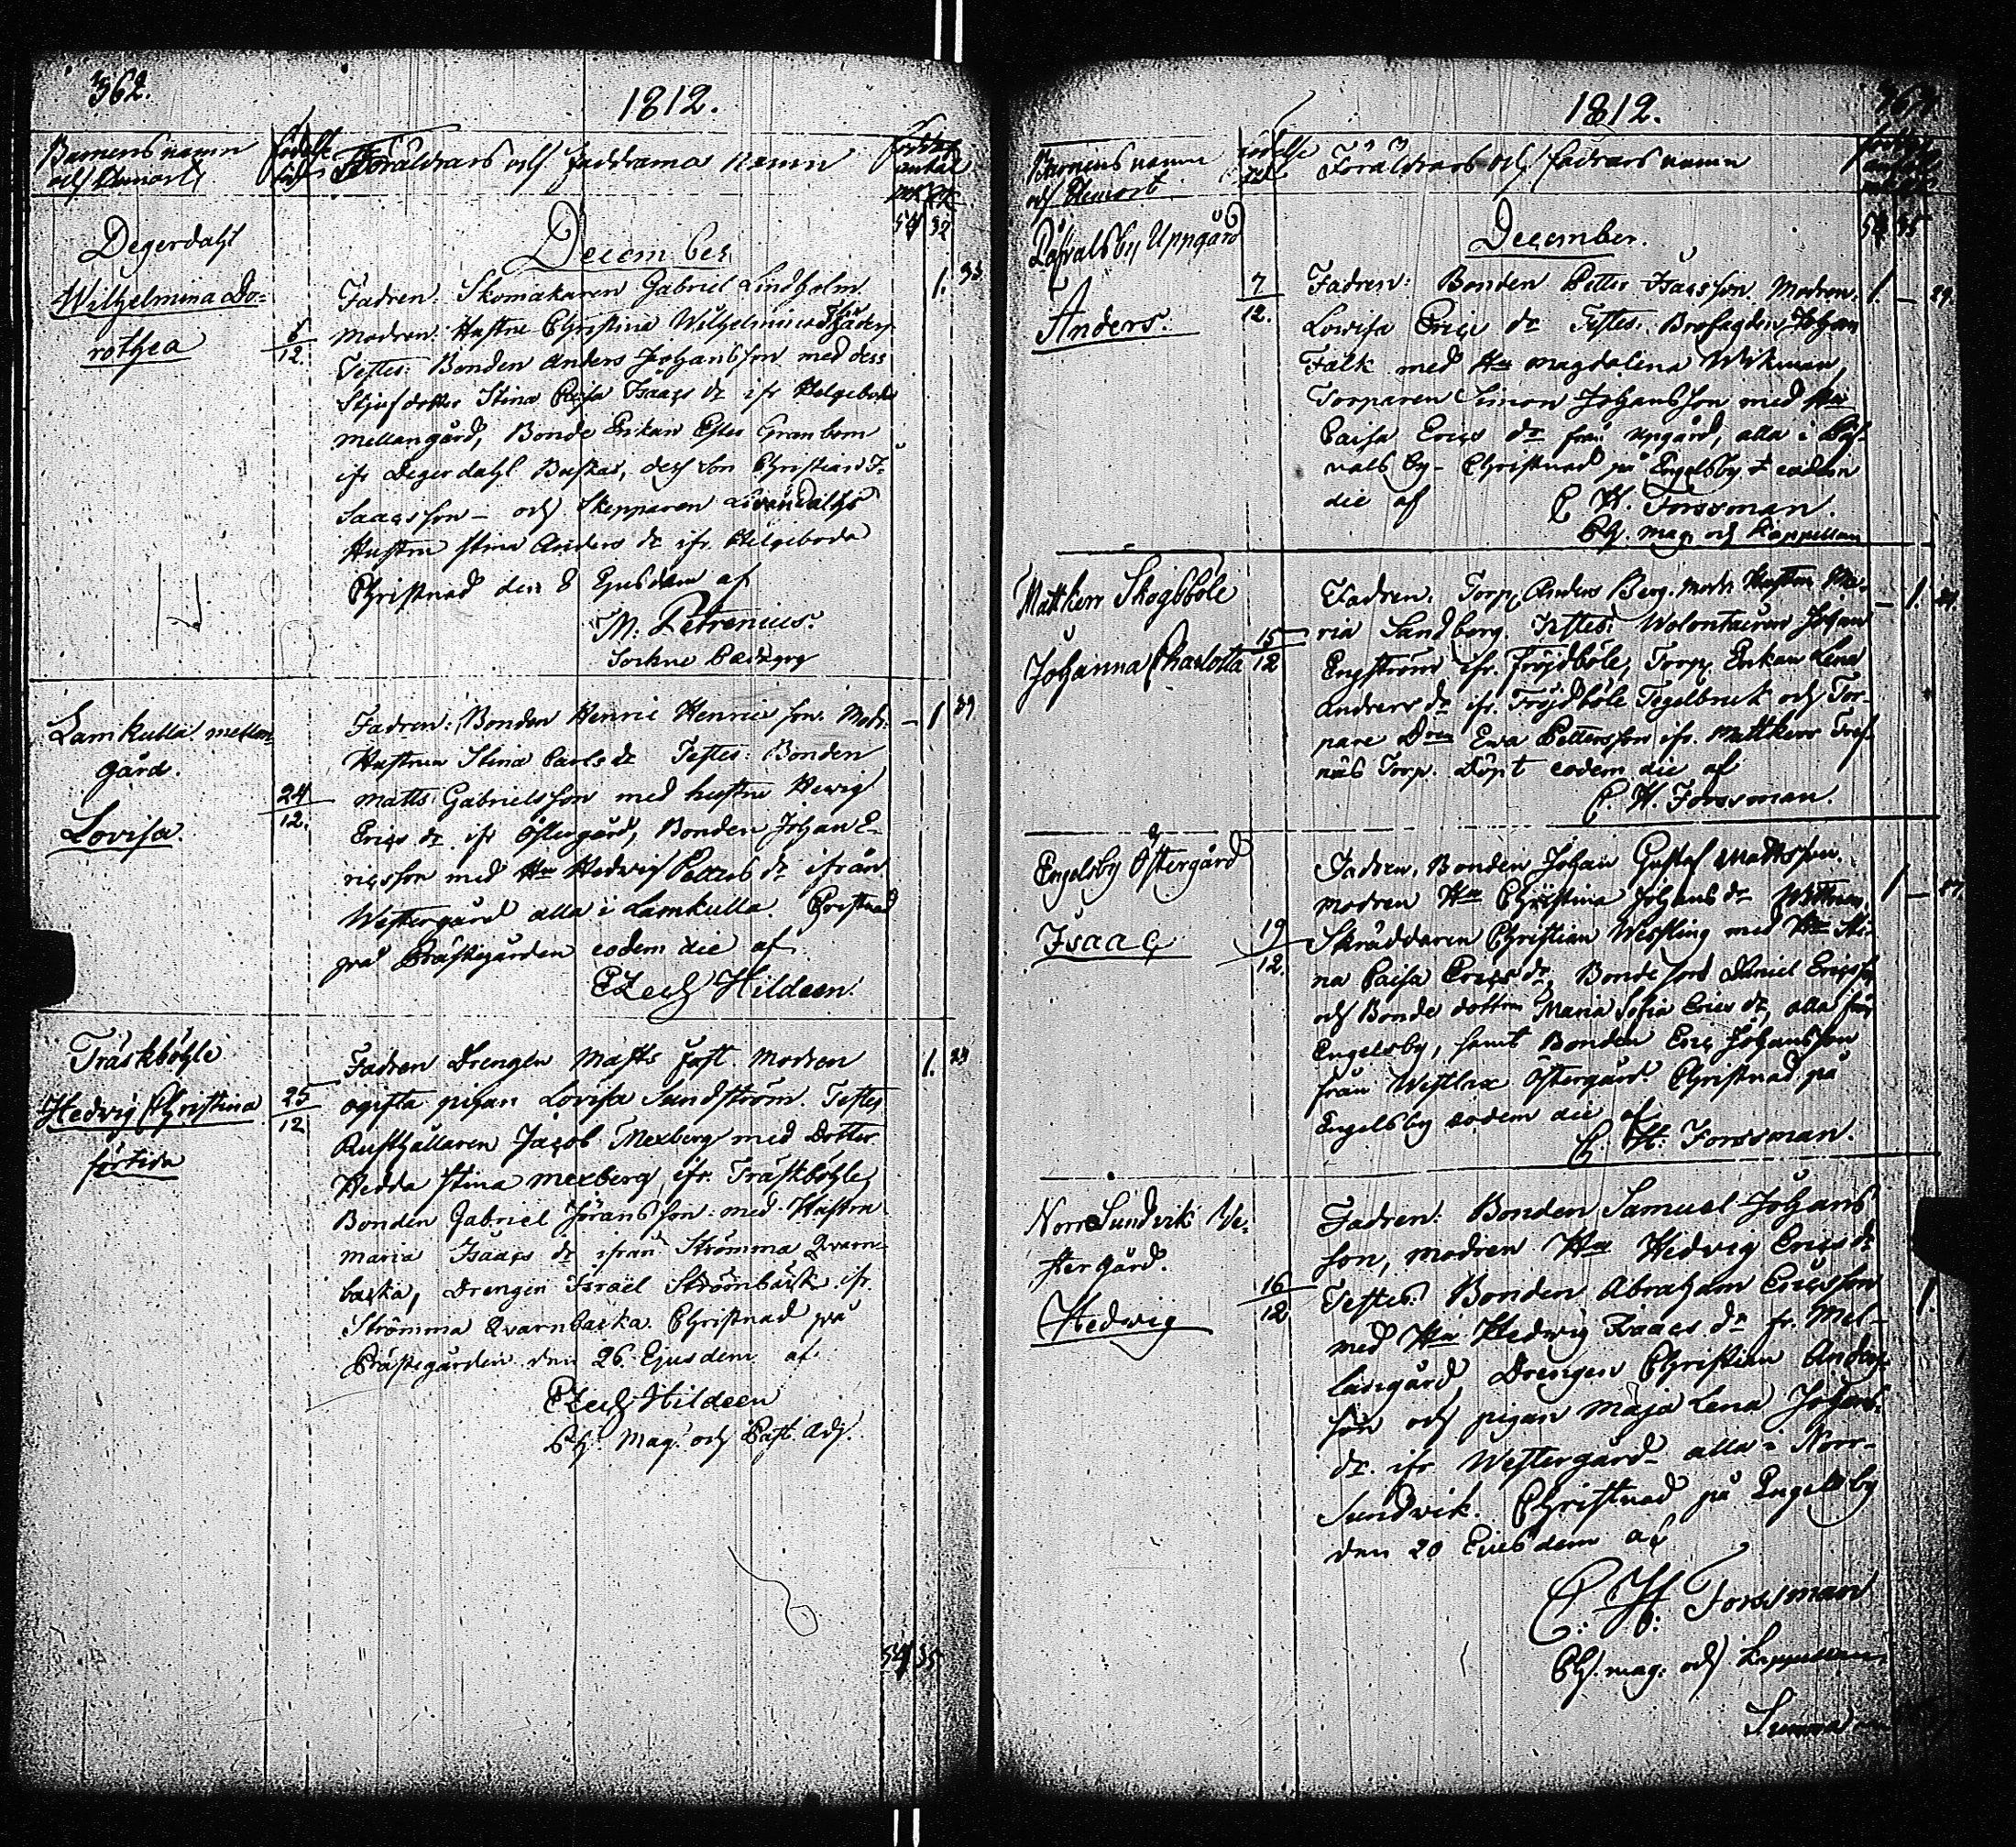 362.
1812.
Barnens namn
och Hemort
födelse
tid
Föräldrars och faddrarnas namn
54 32
Degerdahl
December
Wilhelmina Do-
rothea
6
12.
Fadren: Skomakaren Gabriel Lindholm
1. 33
Modren: Hustru Christina Wilhelmina
Testes: Bonden Anders Johansson med dess
Stjufdotter Stina Isaacs dr ifr Helgeboda
mellangård, Bonde Enkan Granbom
ifr Degerdahl Buskas, dess Son Christian I-
saacsson – och Skepparen
Hustru Stina Anders dr ifr. Helgeboda
Christnad den 8 Ejusdem af
M: Petrenius.
Sockne Pædagog
Lamkulla mellan-
gård.
Lovisa.
24
12.
Fadren: Bonden Henric Henricsson. Modr:
– 1 39
Hustrun Stina Carls dr Testes: Bonden
Matts Gabrielsson med hustru Hewig
Erics dr. ifr Östergård, Bonden Johan E-
ricsson med Hu Hedwig Petters dr ifrån
Westergård alla i Lamkulla. Christnad
på Prästegården eodem die af
Ezech Hildeen.
Träskböhle
Hedvig Christina
25
12
Fadren Drengen Matts Fast. Modren
1.
ogifta pigan Lovisa Sundström. Testes
Rusthållaren Jacob Mexberg med Dotter
Hedda Stina Mexberg, ifr. Träskböhle,
Bonden Gabriel Göransson med Hustru
Maria Isaacs dr ifrån Strömma Qvarn-
backa, Drengen Israël Strömbäck ifr.
Strömma Qvarnbacka Christnad på
Prästegården den 26 Ejusdem af
Ezech Hildeen
Ph: Mag. och Past. Adj.
54 35
1812.
Barnens namn
och Hemort
födelse
tid
Föräldrars och fadrars namn
54 35
Påfvalsby Uppgård
December.
Anders.
7
12.
Fadren: Bonden Petter Isacsson. Modren.
1. – 29.
Lovisa Erics dr Testes: Brofogden Johan
Falk med Hu Magdalena Wikman
Torparen Simon Johansson med Hu
Caisa Erics dr från Upgård, alla i Påf-
vals by – Christnad på Engelsby eodem
die af
C. H. Forssman.
Ph. mag. och Kappellan
Mattkerr Skogsböle
Johanna Charlotta
15
12
Fadren. Torp. Anders Berg. Modr. Hustru Ma-
– 1.
ria Sandberg. Testes: Wolontairen Johan
Engström ifr. Fröjdböle, Torp. Enkan Lena
Anders dr ifr. Fröjdböle Tegelbruk och Tor-
pare Dren Ewa Pettersson ifr. Mattkerr
näs Torp. Döpt eodem die af
C. H. Forssman.
Engelsby Östergård
Isaac
19
12.
Fadren. Bonden Johan Gustaf Mattsson.
1 –
modren Hu Christina Johans dr
Skräddaren Christian Westling med Hu Sti-
na Caisa Erics dr, Bonde son Daniel Ericsson
och Bonde dottren Maria Sofia Erics dr, alla från
Engelsby, samt Bonden Eric Johansson
från Westlax Östergård. Christnad på
Engelsby eodem die af
C. H. Forssman.
Norr Sundvik We-
stergård.
Hedwig
16
12
Fadren: Bonden Samuel Johans
son, modren Hu Hedvig Erics dr
Testes: Bonden Abraham Ericsson
1.
med Hu Hedwig Isaacs dr fr. Mel-
langård, Drengen Christian Anders-
son och pigan Maja Lena Johans-
dr. ifr Westergård alla i Norr-
Sundvik. Christnad på Engelsby
den 20 Ejusdem af
C. H. Forssman
Ph. mag: och Kappellan
Summa